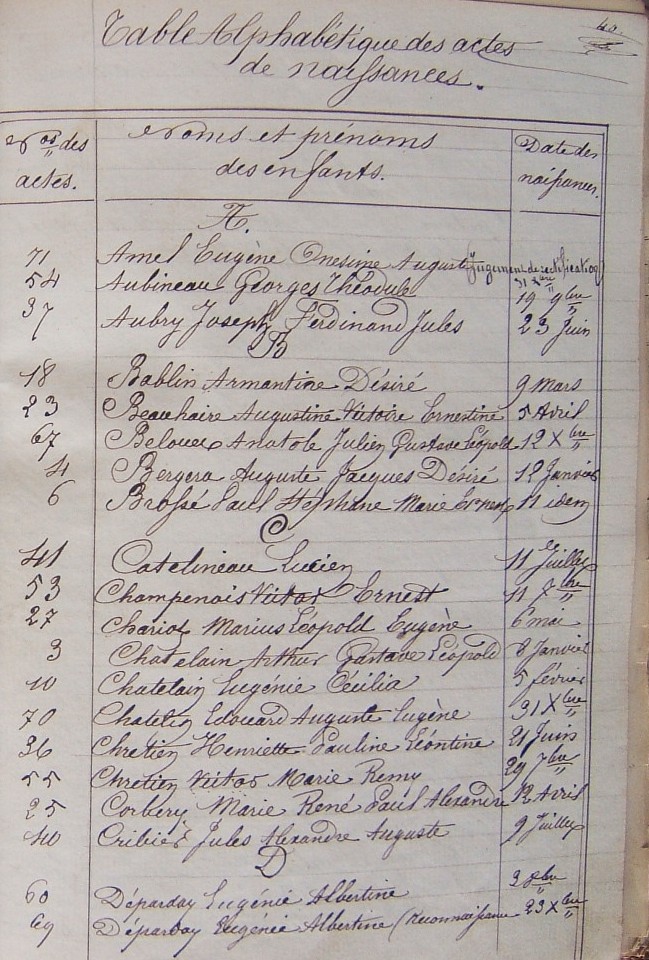 40.
Table Alphabétique des actes
de naissances.
Nos des
actes.
Noms et prénoms
des enfants.
Date des
naissances.
A.
71 Amel Eugène Onesime Auguste Jugement de rectification
54 Aubineau Georges Théodule 19 9bre
37 Aubry Joseph Ferdinand Jules 23 Juin
B
18 Bablin Armantine Désiré 9 Mars
23 Beauhaire Augustine Victoire Ernestine 5 Avril
67 Beloux Anatole Julien Gustave Léopold 12 Xbre
4 Bergera Auguste Jacques Désiré 12 Janvier
6 Brossé Paul Stéphane Marie 11 idem
C
41 Catelineau Lucien 11 Juillet
53 Champenois Victor Ernest 11 7bre
27 Chariot Marius Léopold Eugène 6 mai
3 Chatelain Arthur Gustave Léopold 8 Janvier
10 Chatelain Eugénie Cécilia 5 février
70 Chatelin Edouard Auguste Eugène 31 Xbre
36 Chretien Henriette Pauline Léontine 21 Juin
55 Chretien Victor Marie Remy 29 7bre
25 Corbery Marie René Paul Alexandre 12 Avril
40 Cribier Jules Alexandre Auguste 9 Juillet
D
60 Déparday Eugénie Albertine 3 8bre
69 Déparday Eugénie Albertine (Reconnaissance 23 Xbre